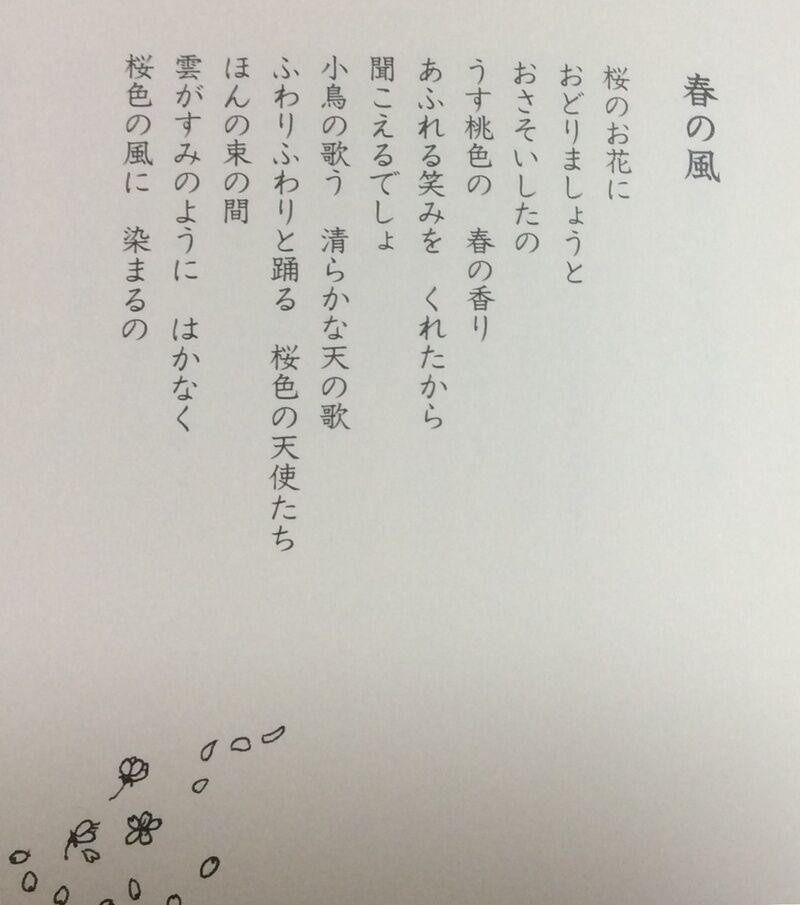 春の風
桜のお花に
おどりましょうと
おさそいしたの
うす桃色の　春の香り
あふれる笑みを　くれたから
聞こえるでしょ
小鳥の歌う　清らかな天の歌
ふわりふわりと踊る　桜色の天使たち
ほんの束の間
雲がすみのように　はかなく
桜色の風に　染まるの